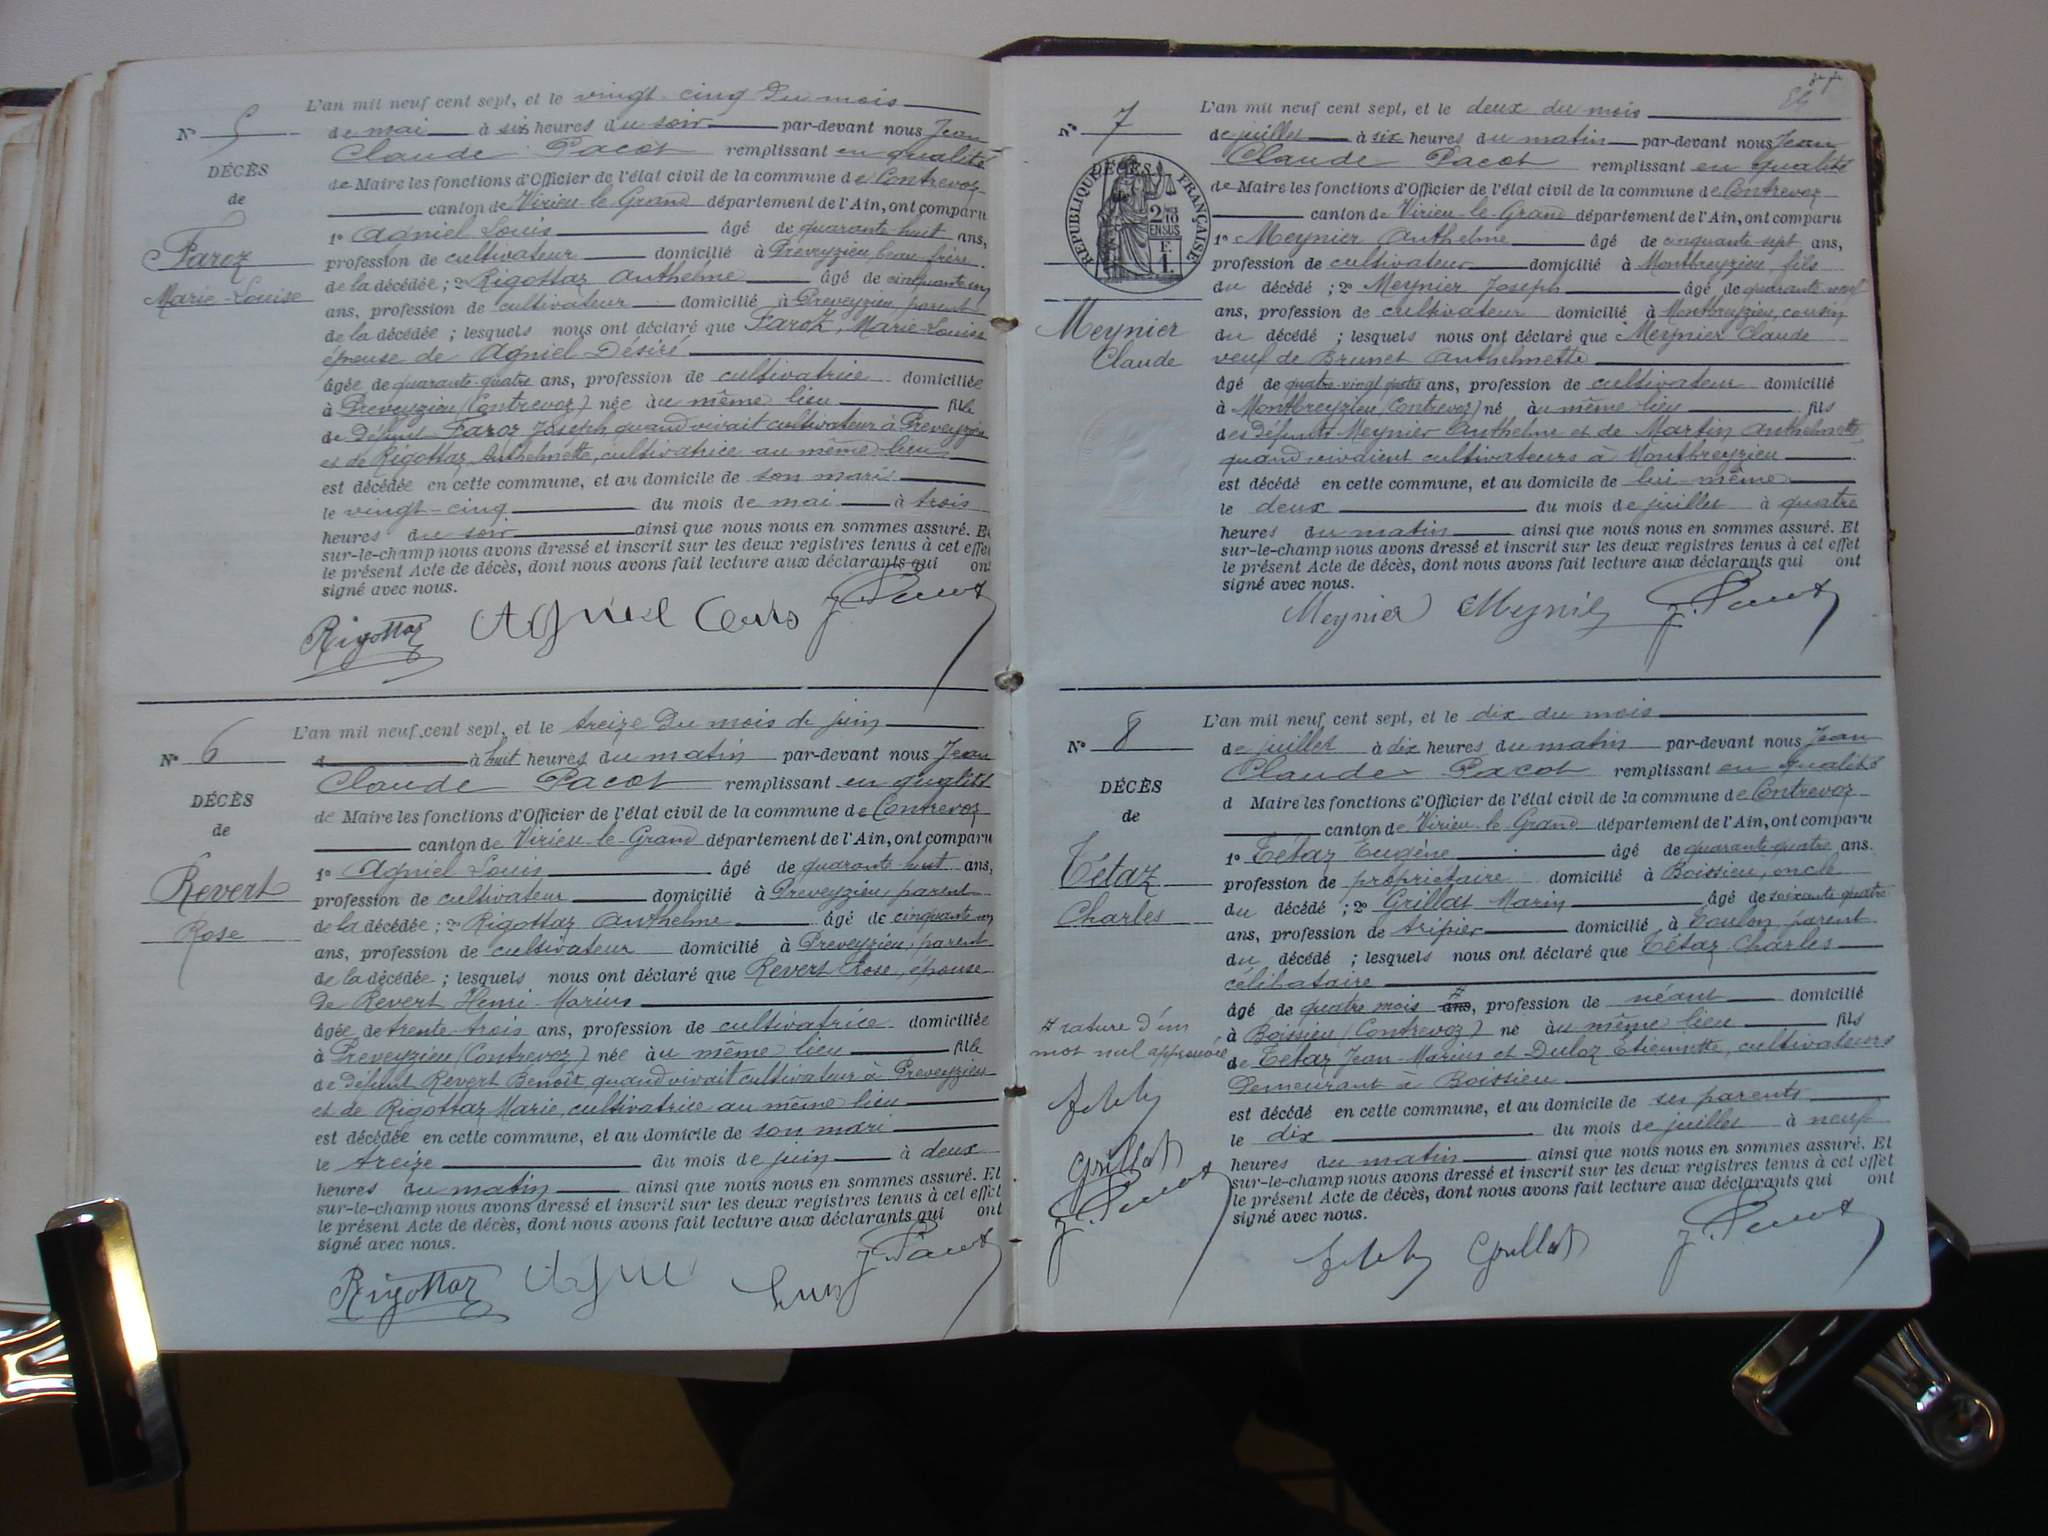 L'an mil neuf cent sept, et le vingt-cinq du mois
N° 5
de mai à six heures du soir par-devant nous Jean
Claude Pacot remplissant en qualité
DÉCÈS
de Maire les fonctions d'Officier de l'état civil de la commune de Contrevoz
de
canton de Virieu-le-Grand département de l'Ain, ont comparu
1° Agniel Louis âgé de quarante-huit ans,
Faroz
profession de cultivateur domicilié à Preveyzieu, beau-frère
Marie-Louise
de la décédée ; 2° Rigottaz Anthelme âgé de cinquante-un
ans, profession de cultivateur domicilié à Preveyzieu, parent
de la décédée ; lesquels nous ont déclaré que Faroz, Marie-Louise
épouse de Agniel Désiré
âgée de quarante-quatre ans, profession de cultivatrice domiciliée
à Preveyzieu (Contrevoz) née au même lieu fille
de défunt Faroz Joseph quand vivait cultivateur à Preveyzieu
et de Rigottaz Anthelmette, cultivatrice au même lieu
est décédée en cette commune, et au domicile de son mari
le vingt-cinq du mois de mai à trois
heures du soir ainsi que nous nous en sommes assuré. Et
sur-le-champ nous avons dressé et inscrit sur les deux registres tenus à cet effet
le présent Acte de décès, dont nous avons fait lecture aux déclarants qui ont
signé avec nous.
Rigottaz Agniel Louis J. Pacot
L'an mil neuf cent sept, et le treize du mois de juin
N° 6
d à huit heures du matin par-devant nous Jean
Claude Pacot remplissant en qualité
DÉCÈS
de Maire les fonctions d'Officier de l'état civil de la commune de Contrevoz
de
canton de Virieu-le-Grand département de l'Ain, ont comparu
1° Agniel Louis âgé de quarante-huit ans,
Revert
profession de cultivateur domicilié à Preveyzieu, parent
Rose
de la décédée ; 2° Rigottaz Anthelme âgé de cinquante-un
ans, profession de cultivateur domicilié à Preveyzieu, parent
de la décédée ; lesquels nous ont déclaré que Revert Rose, épouse
de Revert Henri-Marius
âgée de trente-trois ans, profession de cultivatrice domiciliée
à Preveyzieu (Contrevoz) née au même lieu fille
de défunt Revert Benoît quand vivait cultivateur à Preveyzieu
et de Rigottaz Marie, cultivatrice au même lieu
est décédée en cette commune, et au domicile de son mari
le treize du mois de juin à deux
heures du matin ainsi que nous nous en sommes assuré. Et
sur-le-champ nous avons dressé et inscrit sur les deux registres tenus à cet effet
le présent Acte de décès, dont nous avons fait lecture aux déclarants qui ont
signé avec nous.
Rigottaz Agniel Louis J. Pacot
L'an mil neuf cent sept, et le deux du mois
N° 7
de juillet à six heures du matin par-devant nous Jean
Claude Pacot remplissant en qualité
DÉCÈS
RÉPUBLIQUE FRANÇAISE
2/10 EN SUS
F. 1.
de Maire les fonctions d'Officier de l'état civil de la commune de Contrevoz
canton de Virieu-le-Grand département de l'Ain, ont comparu
1° Meynier Anthelme âgé de cinquante-sept ans,
profession de cultivateur domicilié à Montbreyzieu, fils
du décédé ; 2° Meynier Joseph âgé de quarante-neuf
ans, profession de cultivateur domicilié à Montbreyzieu, cousin
Meynier
Claude
du décédé ; lesquels nous ont déclaré que Meynier Claude
veuf de Brunet Anthelmette
âgé de quatre-vingt-quatre ans, profession de cultivateur domicilié
à Montbreyzieu (Contrevoz) né au même lieu fils
des défunts Meynier Anthelme et de Martin Anthelmette,
quand vivaient cultivateurs à Montbreyzieu
est décédé en cette commune, et au domicile de lui-même
le deux du mois de juillet à quatre
heures du matin ainsi que nous nous en sommes assuré. Et
sur-le-champ nous avons dressé et inscrit sur les deux registres tenus à cet effet
le présent Acte de décès, dont nous avons fait lecture aux déclarants qui ont
signé avec nous.
Meynier Meynier J. Pacot
L'an mil neuf cent sept, et le dix du mois
N° 8
de juillet à dix heures du matin par-devant nous Jean
Claude Pacot remplissant en qualité
DÉCÈS
d Maire les fonctions d'Officier de l'état civil de la commune de Contrevoz
de
canton de Virieu-le-Grand département de l'Ain, ont comparu
1° Tétaz Eugène âgé de quarante-quatre ans.
Tétaz
profession de propriétaire domicilié à Boissieu, oncle
Charles
du décédé ; 2° Grillat Marin âgé de soixante-quatre
ans, profession de tripier domicilié à Toulon parent
du décédé ; lesquels nous ont déclaré que Tétaz Charles
célibataire
âgé de quatre mois ans, profession de néant domicilié
à Boissieu (Contrevoz) né au même lieu fils
# rature d'un
mot nul approuvée
de Tétaz Jean-Marius et Duloz Etiennette, cultivateurs
demeurant à Boissieu
est décédé en cette commune, et au domicile de ses parents
le dix du mois de juillet à neuf
heures du matin ainsi que nous nous en sommes assuré. Et
sur-le-champ nous avons dressé et inscrit sur les deux registres tenus à cet effet
le présent Acte de décès, dont nous avons fait lecture aux déclarants qui ont
signé avec nous.
Grillat
J. Pacot
Grillat J. Pacot